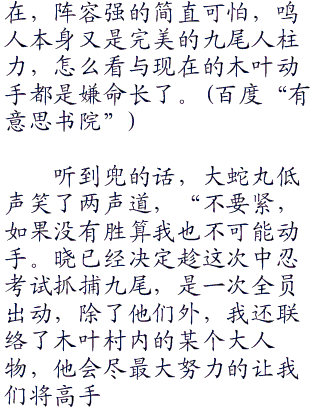 在，阵容强的简直可怕，鸣
人本身又是完美的九尾人柱
力，怎么看与现在的木叶动
手都是嫌命长了。(百度“有
意思书院”)
听到兜的话，大蛇丸低
声笑了两声道，“不要紧，
如果没有胜算我也不可能动
手。晓已经决定趁这次中忍
考试抓捕九尾，是一次全员
出动，除了他们外，我还联
络了木叶村内的某个大人
物，他会尽最大努力的让我
们将高手